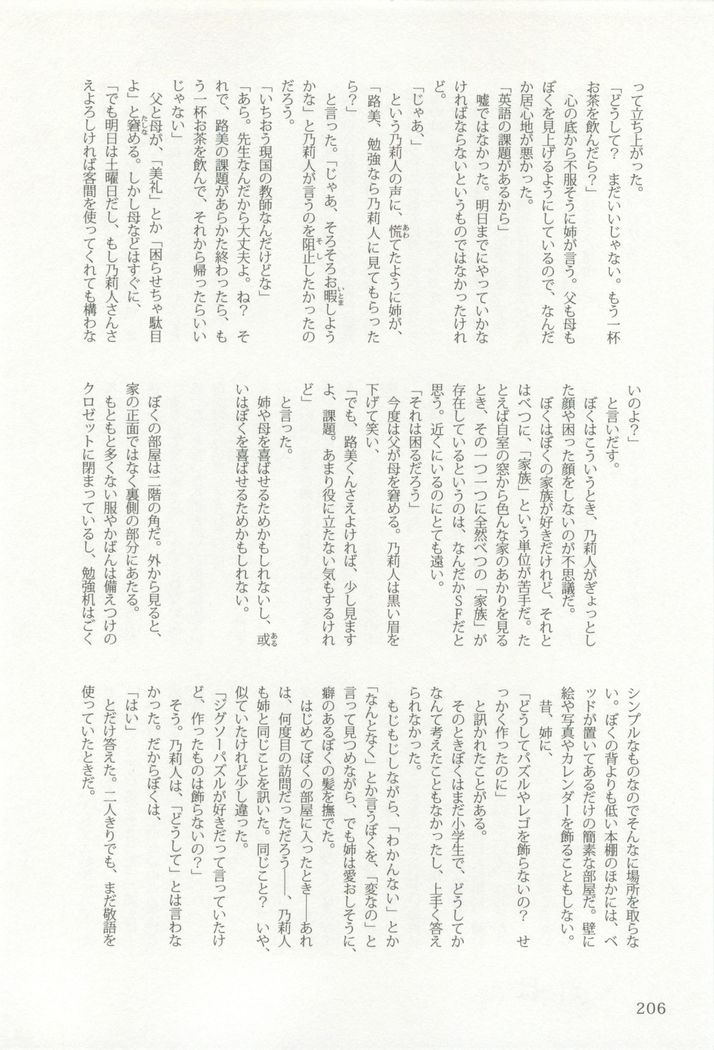 って立ち上がった。
「どうして？　まだいいじゃない。もう一杯
お茶を飲んだら？」
心の底から不服そうに姉が言う。父も母も
ぼくを見上げるようにしているので、なんだ
か居心地が悪かった。
「英語の課題があるから」
嘘ではなかった。明日までにやっていかな
ければならないというものではなかったけれ
ど。
「じゃあ、」
という乃莉人の声に、慌てたように姉が、
「路美、勉強なら乃莉人に見てもらった
ら？」
と言った。「じゃあ、そろそろお暇しよう
かな」と乃莉人が言うのを阻止したかったの
だろう。
「いちおう現国の教師なんだけどな」
「あら。先生なんだから大丈夫よ。ね？　そ
れで、路美の課題があらかた終わったら、も
う一杯お茶を飲んで、それから帰ったらいい
じゃない」
父と母が、「美礼」とか「困らせちゃ駄目
よ」と窘める。しかし母などはすぐに、
「でも明日は土曜日だし、もし乃莉人さんさ
えよろしければ客間を使ってくれても構わな
いのよ？」
と言いだす。
ぼくはこういうとき、乃莉人がぎょっとし
た顔や困った顔をしないのが不思議だ。
ぼくはぼくの家族が好きだけれど、それと
はべつに、「家族」という単位が苦手だ。た
とえば自室の窓から色んな家のあかりを見る
とき、その一つ一つに全然べつの「家族」が
存在しているというのは、なんだかＳＦだと
思う。近くにいるのにとても遠い。
「それは困るだろう」
今度は父が母を窘める。乃莉人は黒い眉を
下げて笑い、
「でも、路美くんさえよければ、少し見ます
よ、課題。あまり役に立たない気もするけれ
ど」
と言った。
姉や母を喜ばせるためかもしれないし、或
いはぼくを喜ばせるためかもしれない。
ぼくの部屋は二階の角だ。外から見ると、
家の正面ではなく裏側の部分にあたる。
もともと多くない服やかばんは備えつけの
クロゼットに閉まっているし、勉強机はごく
シンプルなものなのでそんなに場所を取らな
い。ぼくの背よりも低い本棚のほかには、ベ
ッドが置いてあるだけの簡素な部屋だ。壁に
絵や写真やカレンダーを飾ることもしない。
昔、姉に、
「どうしてパズルやレゴを飾らないの？　せ
っかく作ったのに」
と訊かれたことがある。
そのときぼくはまだ小学生で、どうしてか
なんて考えたこともなかったし、上手く答え
られなかった。
もじもじしながら、「わかんない」とか
「なんとなく」とか言うぼくを、「変なの」と
言って見つめながら、でも姉は愛おしそうに、
癖のあるぼくの髪を撫でた。
はじめてぼくの部屋に入ったとき――あれ
は、何度目の訪問だっただろう――、乃莉人
も姉と同じことを訊いた。同じこと？　いや、
似ていたけれど少し違った。
「ジグソーパズルが好きだって言っていたけ
ど、作ったものは飾らないの？」
そう。乃莉人は、「どうして」とは言わな
かった。だからぼくは、
「はい」
とだけ答えた。二人きりでも、まだ敬語を
使っていたときだ。
206